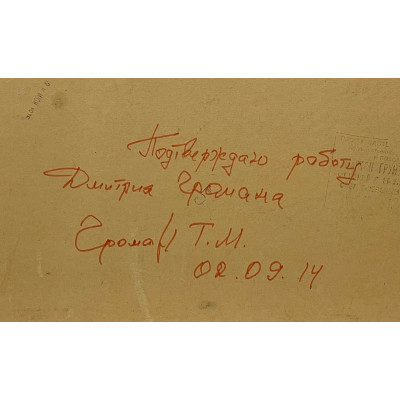 Подтверждаю работу
Дмитрия Громана
Громан Т.М.
02.09.14